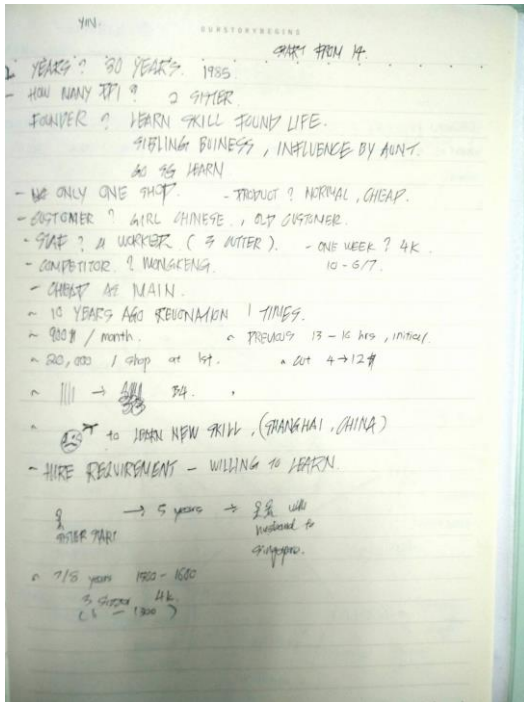 YIN.
OURSTORYBEGINS
START FROM 14.
YEARS? 30 YEARS. 1985
- HOW MANY ? 2 SISTER
FOUNDER ? LEARN SKILL FOUND LIFE.
SIBLING BUINESS, INFLUENCE BY AUNT.
GO SG LEARN
- ONLY ONE SHOP. - PRODUCT ? NORMAL, CHEAP.
- CUSTOMER ? GIRL CHINESE., OLD CUSTOMER.
- STAF ? 4 WORKER (3 CUTTER). - ONE WEEK ? 4K.
- COMPETITOR. ? WONGKENG. 10 - 6/7.
- CHEAP AS MAIN.
~ 10 YEARS AGO 1 TIMES.
~ 900$ / month. ~ PREVIOUS 13 - 16 hrs, initial.
~ 20,000 / shop at 1st. ~ cut 4 → 12$
~ → B4.
~ to LEARN NEW SKILL, (SHANGHAI, CHINA)
~ HIRE REQUIREMENT - WILLING TO LEARN.
→ 5 years → with
SISTER START husband to
Singapore.
~ 7/8 years 1500 - 1600
3 4k.